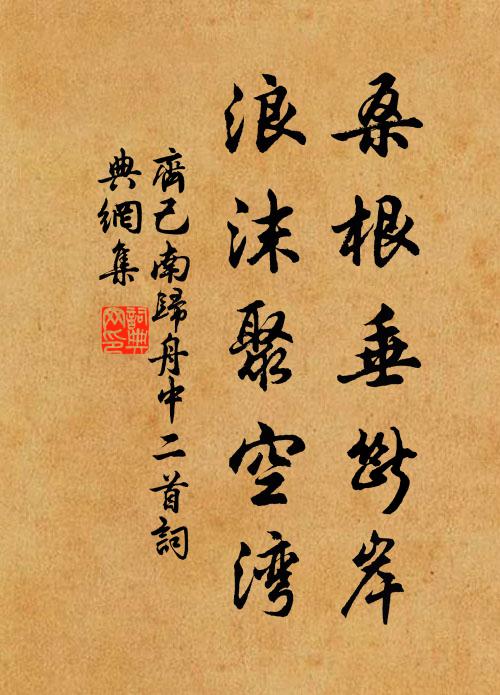 桑根垂断岸
浪沫聚空湾
齊己南歸舟中二首詞
典網集
詞典網印